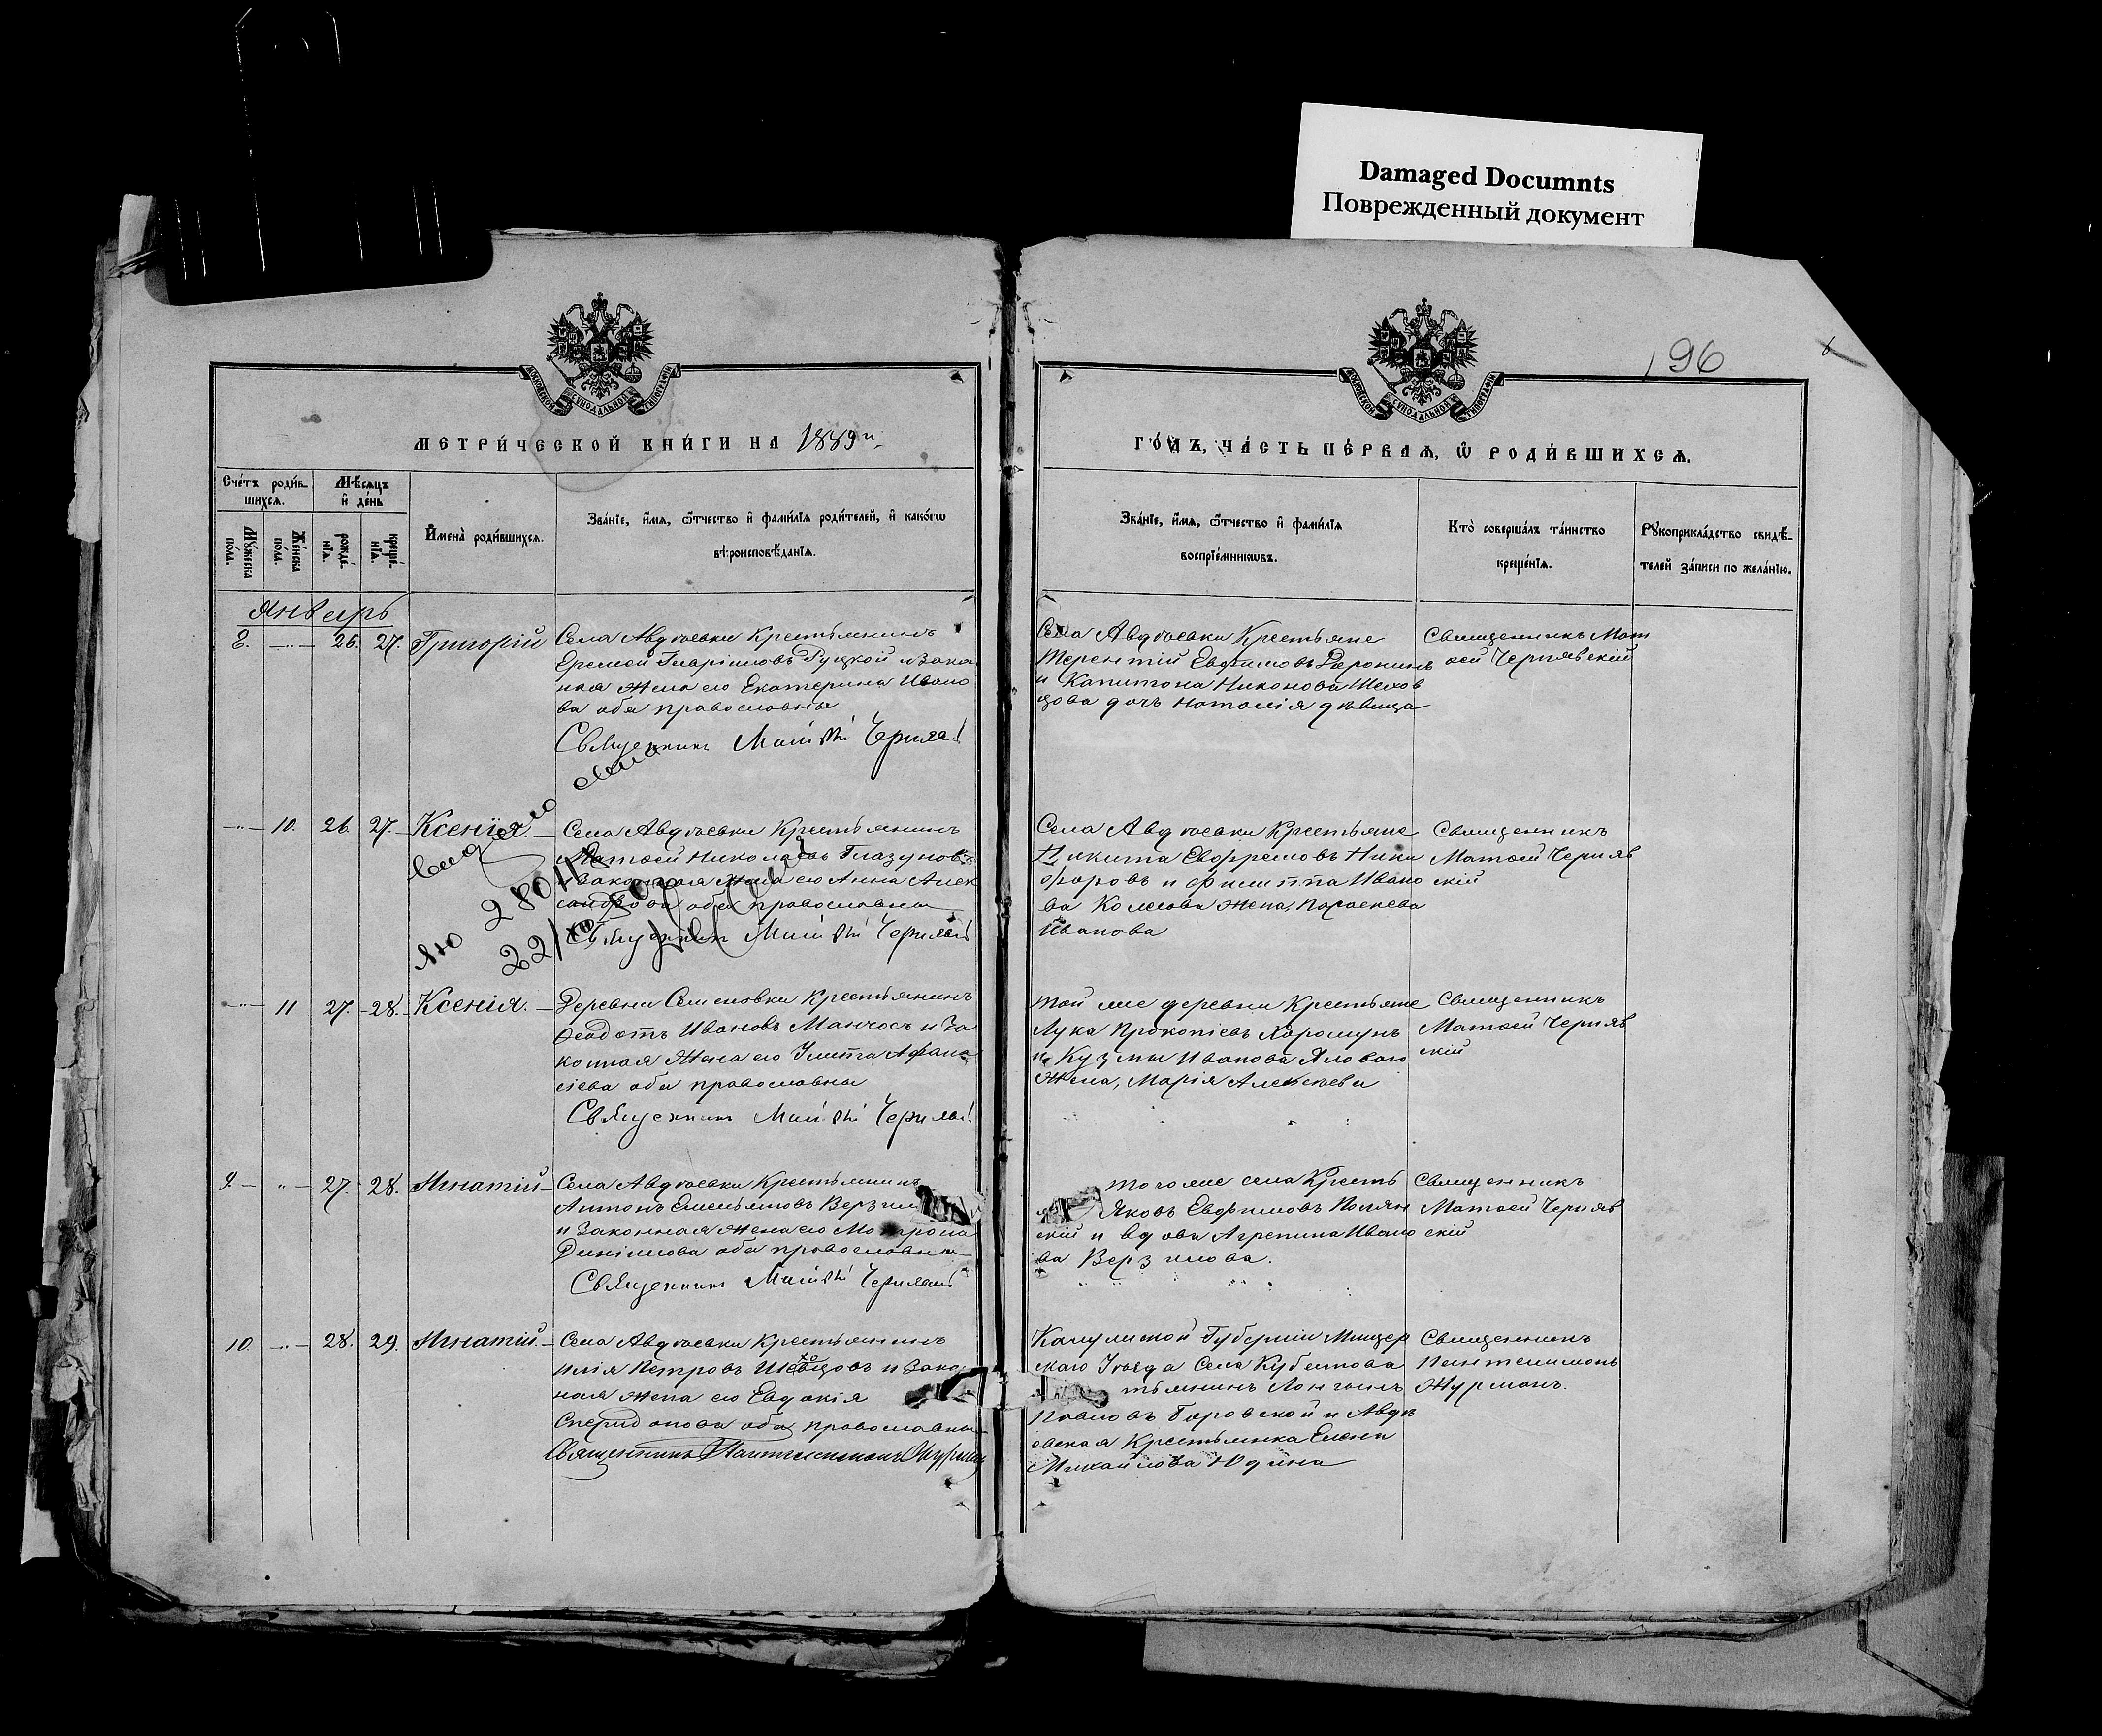 Damaged Documnts
Поврежденный документ
196
МОСКОВСКОЙ СУНОДАЛЬНОЙ ТИПОГРАФІИ
МОСКОВСКОЙ СУНОДАЛЬНОЙ ТИПОГРАФІИ
МЕТРИ́ЧЕСКОЙ КНИ́ГИ НА 1889 й
ГО́ДЪ, ЧА́СТЬ ПЕ́РВАѦ, Ѽ РОДИ́ВШИХСѦ.
Сче́тъ роди́в-
шихсѧ.
Мѣ́сѧцъ
и҆ де́нь
Мꙋ́жеска
по́ла.
Же́нска
по́ла.
рожде́-
нїѧ.
креще́-
нїѧ.
И҆мена̀ роди́вшихсѧ.
Зва́нїе, и҆́мѧ, ѻ҆́тчество и҆ фами́лїѧ роди́телей, и҆ како́гѡ
вѣроисповѣ́данїѧ.
Зва́нїе, и҆́мѧ, ѻ҆́тчество и҆ фами́лїѧ
воспрїе́мникѡвъ.
Кто̀ соверша́лъ та́инство
креще́нїѧ.
Рꙋкоприкла́дство свидѣ́-
телей за́писи по жела́нїю.
Январь
8. —"— 26. 27. Григорій
Села Авдѣевки Крестьянинъ
Еремей Гавріиловъ Гуцкой и закон
ная жена его Екатерина Ивано
ва оба православны
Священникъ Матѳій Черняв
Села Авдѣевки Крестьяне
Терентій Евфимовъ Воронинъ
и Капитона Никонова Шехов
цова дочь Наталія дѣвица
Священникъ Мат
ѳей Чернявскій
—"— 10. 26. 27. Ксенія. —
Села Авдѣевки Крестьянинъ
Матѳей Николаевъ Глазуновъ
и законная жена его Анна Алек
сандрова оба православны
Священникъ Матѳій Чернявс
выдано
2
22/
Села Авдѣевки Крестьяне
Никита Евфремовъ Ники
форовъ и Филиппа Ивано
ва Колесова жена, Параскева
Иванова
Священникъ
Матѳей Черняв
скій
—"— 11 27. 28. Ксенія. —
Деревни Семеновки Крестьянинъ
Ѳеодотъ Ивановъ Манчосъ и за
конная жена его Улита Афана
сіева оба православны
Священникъ Матѳій Чернявс
Той же деревни Крестьяне
Лука Прокопіевъ Хоромунъ
и Кузмы Иванова Яловаго
жена, Марія Алексѣева
Священникъ
Матѳей Черняв
скій
9. — " — 27. 28. Игнатій —
Села Авдѣевки Крестьянинъ
Антонъ Емельяновъ Верзил
и законная жена его Матрона
Даніилова оба православны
Священникъ Матѳій Чернявс
того же села Кресть
Яковъ Евфимовъ Полян
скій и вдова Агрепина Ивано
ва Верзилова.
Священникъ
Матѳей Черняв
скій
10. —"— 28. 29. Игнатій. —
Села Авдѣевки Крестьянинъ
Илія Петровъ Шевцовъ и закон
ная жена его Евдокія
Спиридонова оба православны
Священникъ Пантелеимонъ Журманъ
Калужской Губерніи Мищов
скаго Уѣзда Села
тьянинъ Лонгинъ
Павловъ Боровской и Авдѣ
евская Крестьянка Елена
Михайлова Юдина
Священникъ
Пантелеимонъ
Журманъ.